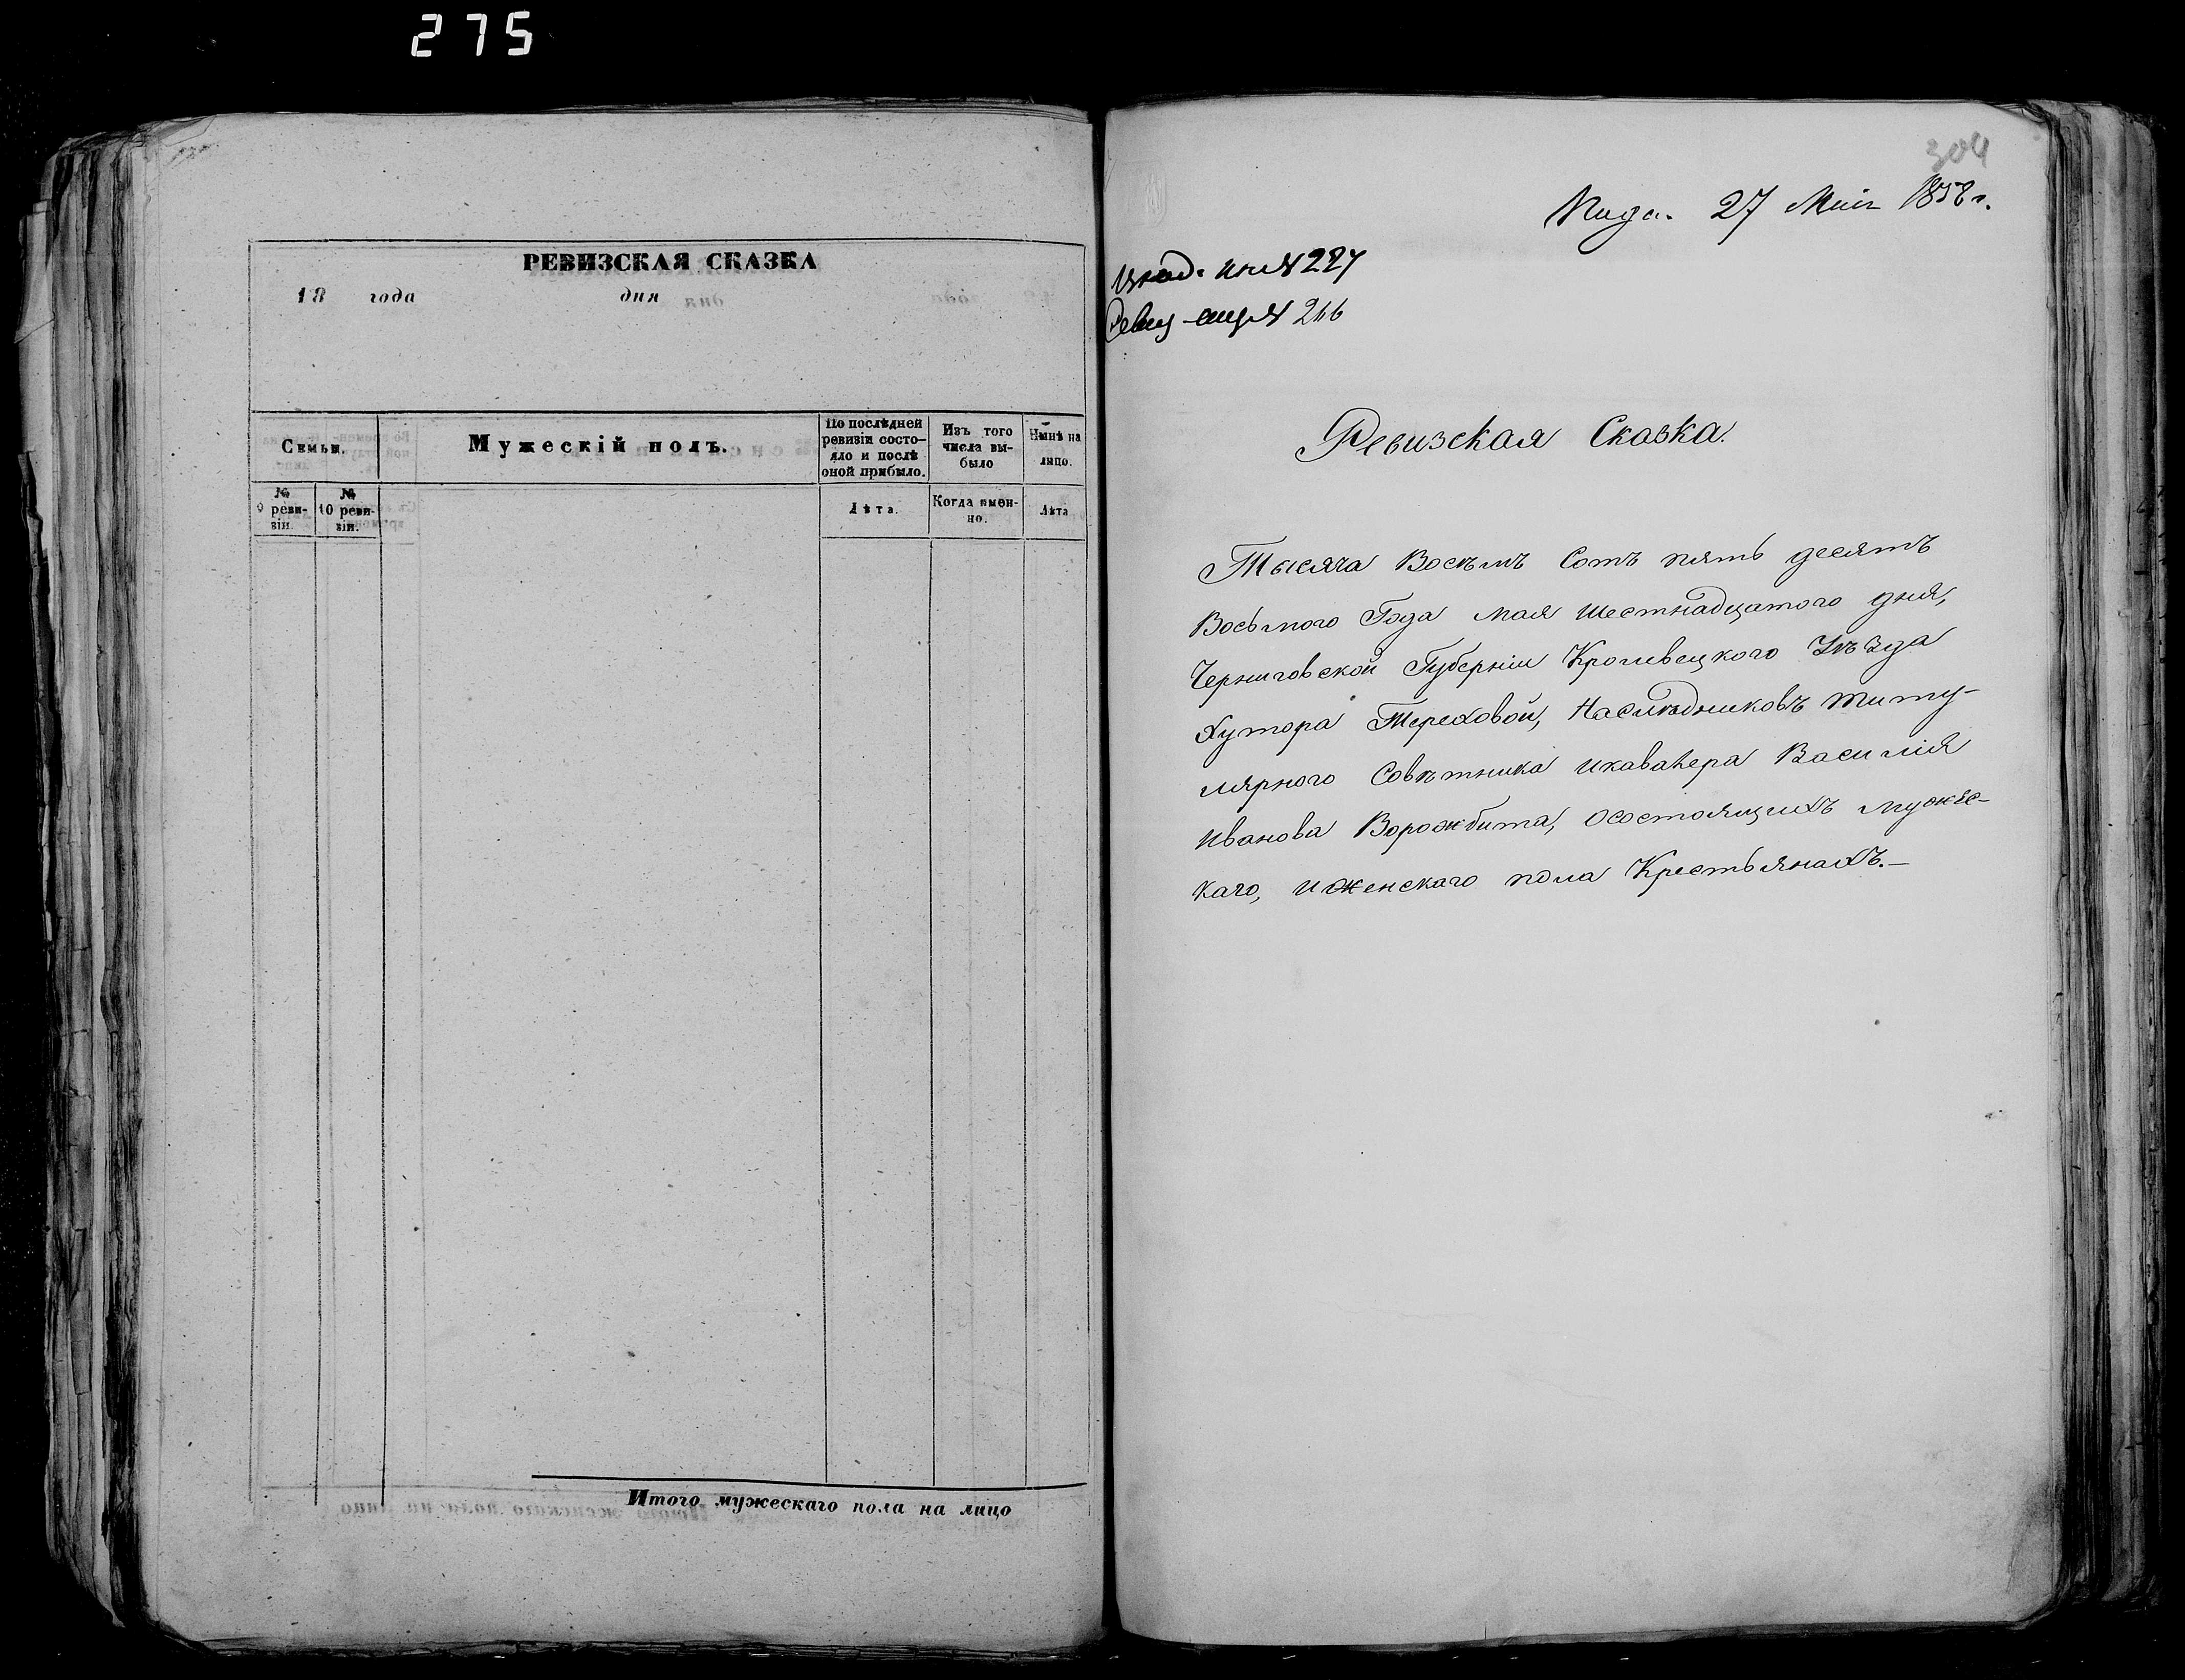 275
РЕВИЗСКАЯ СКАЗКА
18 года дня
Семьи.
Мужескій полъ.
По послѣдней ревизіи состояло и послѣ оной прибыло.
Изъ того числа выбыло
Нынѣ на лицо.
№ 9 ревизіи.
№ 10 ревизіи.
Лѣта.
Когда именно.
Лѣта
Итого мужескаго пола на лицо
304
27 Мая 1858 г.
227
266
Ревизская Сказка.
Тысяча Восемъ Сотъ пять десятъ
Восьмого Года мая шестнадцатого дня,
Черниговской Губерніи Кролевецкого Уѣзда
Хутора Тереховой, Наслѣдниковъ титу-
лярного Совѣтника икавалера Василія
Иванова Ворожбита, осостоящихъ мужес-
каго, иженскаго пола Крестьянахъ.—